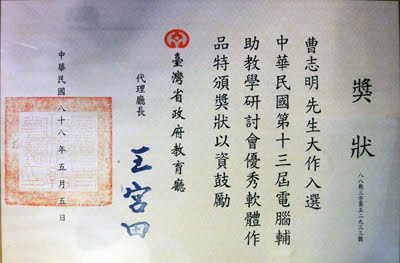 獎狀
曹志明先生大作入選
中華民國第十三屆電腦輔
助教學研討會優秀軟體作
品特頒獎狀以資鼓勵
臺灣省政府教育廳
代理廳長
王宮田
中華民國八十八年五月五日